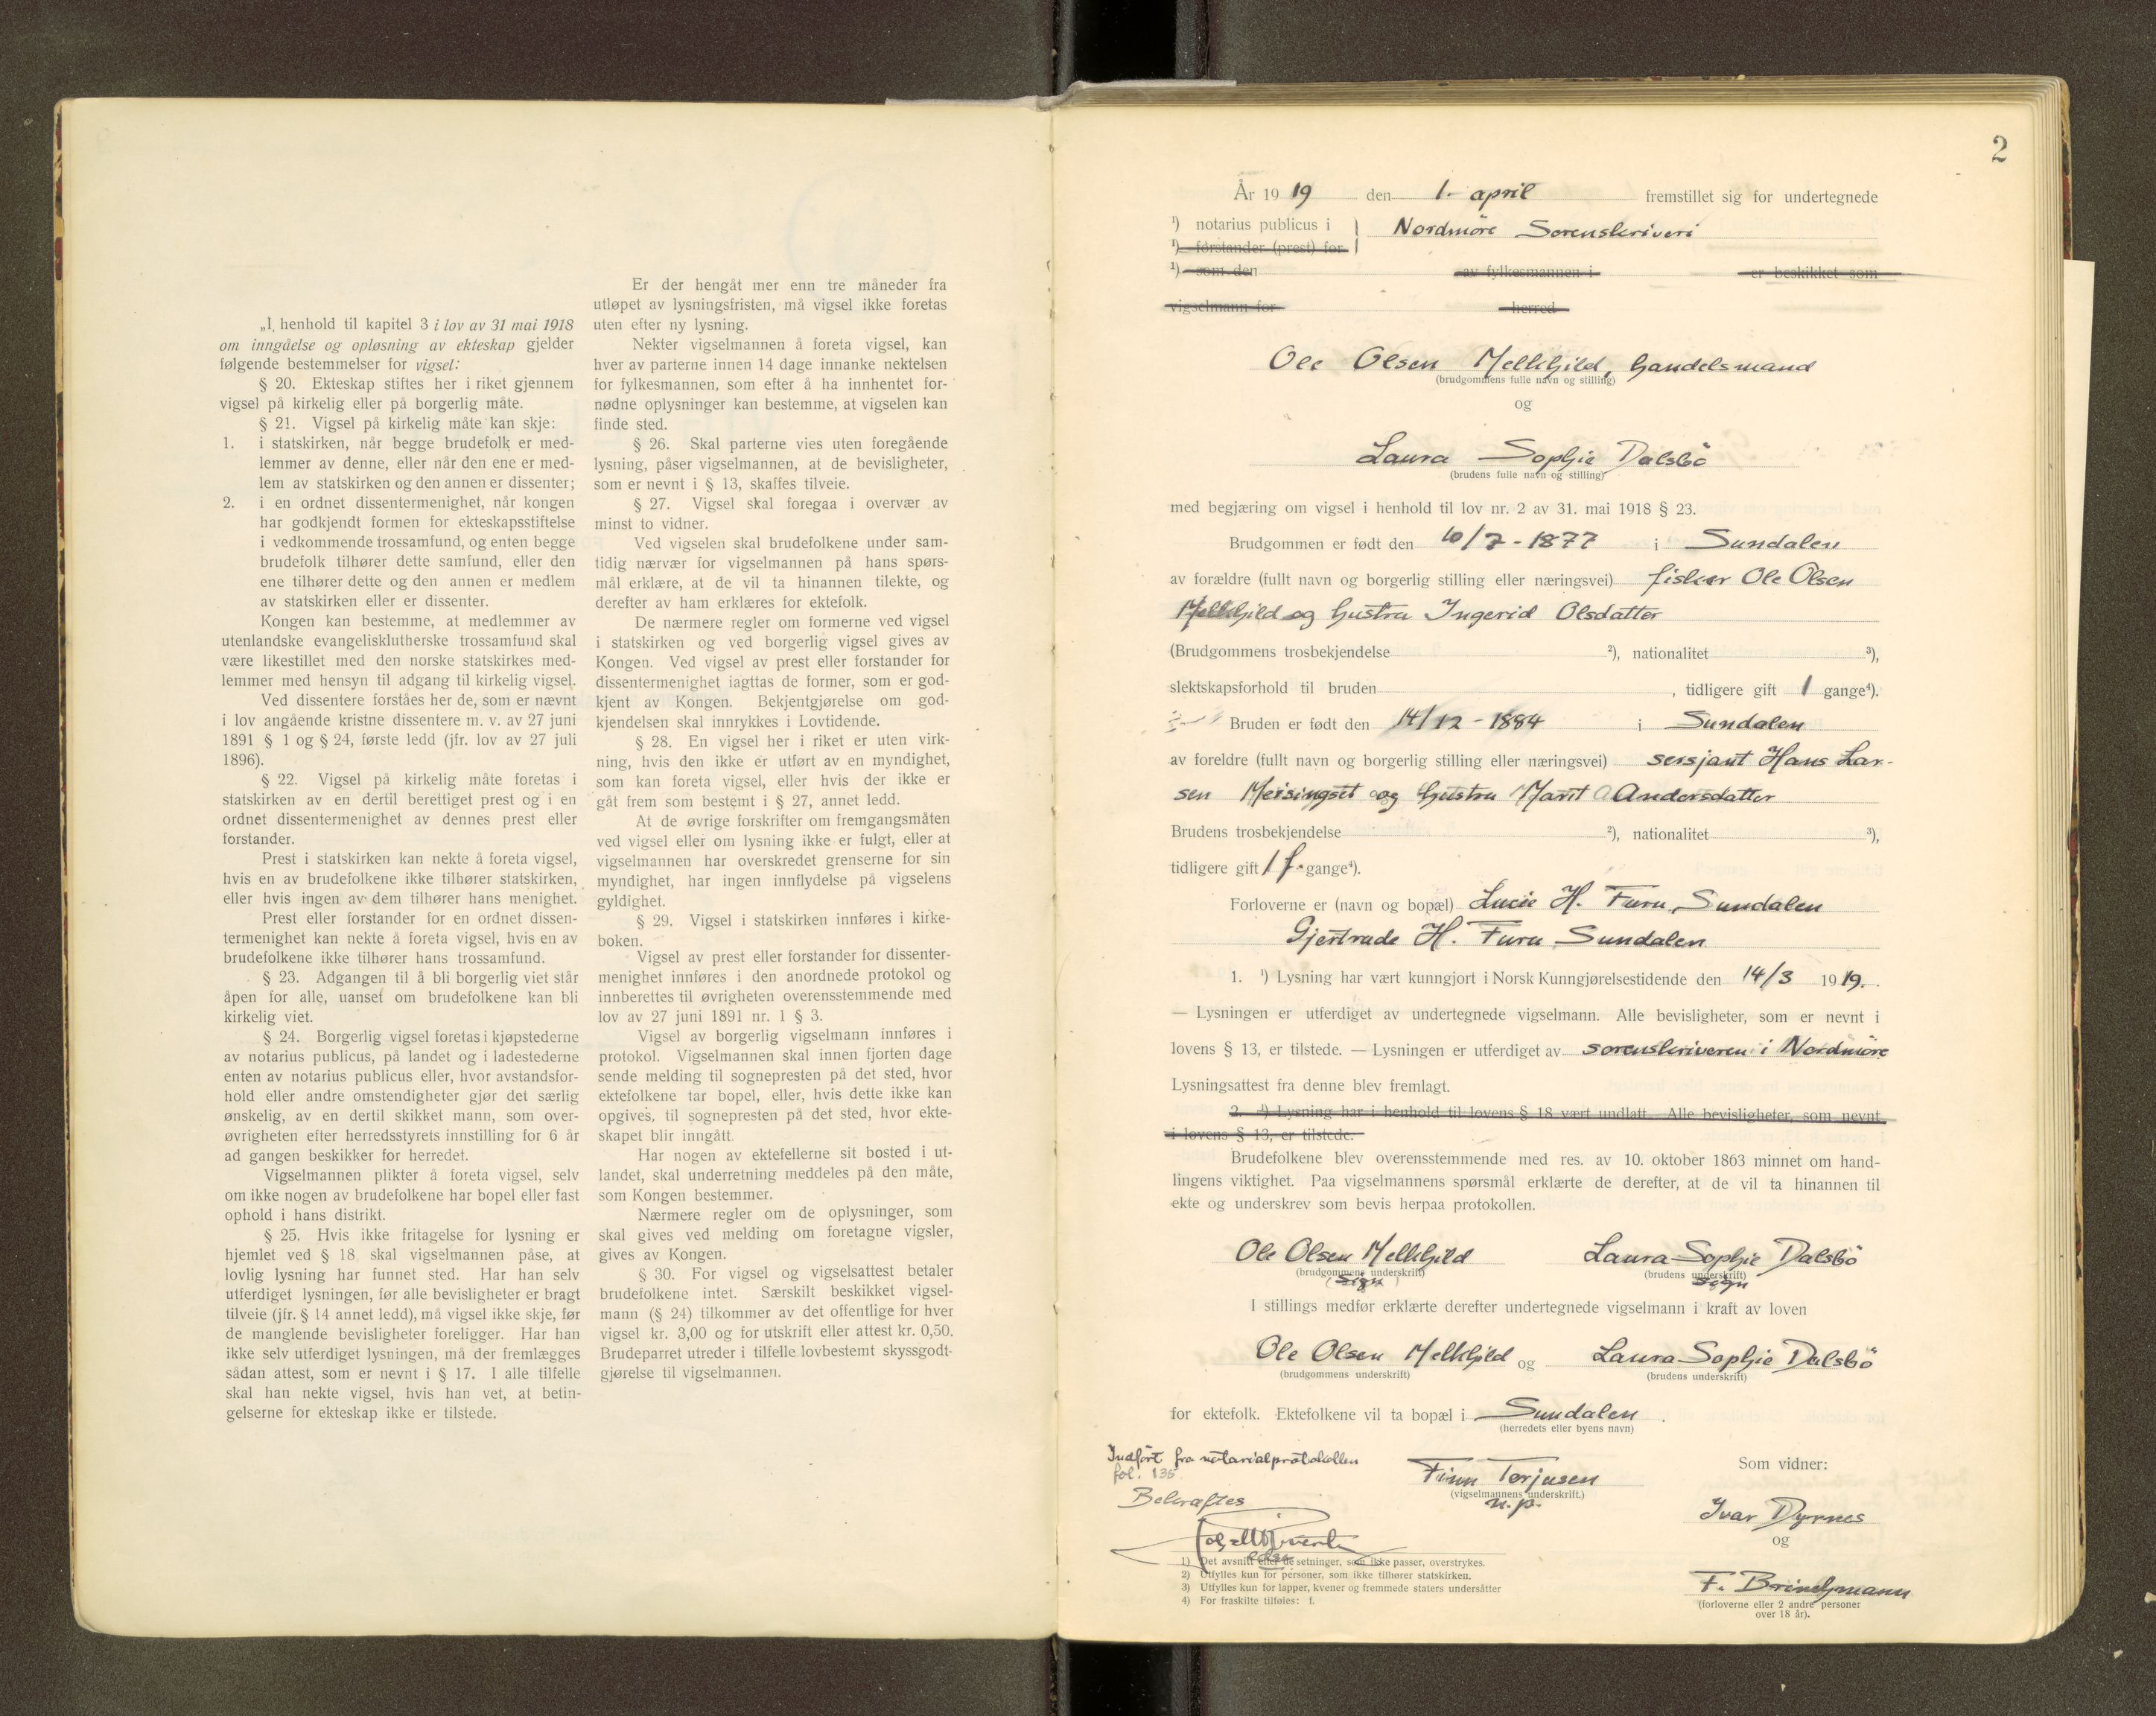 „I henhold til kapitel 3 i lov av 31 mai 1918
om inngåelse og opløsning av ekteskap gjelder
følgende bestemmelser for vigsel:
§ 20. Ekteskap stiftes her i riket gjennem
vigsel på kirkelig eller på borgerlig måte.
§ 21. Vigsel på kirkelig måte kan skje:
1. i statskirken, når begge brudefolk er med-
lemmer av denne, eller når den ene er med-
lem av statskirken og den annen er dissenter;
2. i en ordnet dissentermenighet, når kongen
har godkjendt formen for ekteskapsstiftelse
i vedkommende trossamfund, og enten begge
brudefolk tilhører dette samfund, eller den
ene tilhører dette og den annen er medlem
av statskirken eller er dissenter.
Kongen kan bestemme, at medlemmer av
utenlandske evangeliskluthérske trossamfund skal
være likestillet med den norske statskirkes med-
lemmer med hensyn til adgang til kirkelig vigsel.
Ved dissentere forståes her de, som er nævnt
i lov angående kristne dissentere m. v. av 27 juni
1891 § 1 og § 24, første ledd (jfr. lov av 27 juli
1896).
§ 22. Vigsel på kirkelig måte foretas i
statskirken av en dertil berettiget prest og i en
ordnet dissentermenighet av dennes prest eller
forstander.
Prest i statskirken kan nekte å foreta vigsel,
hvis en av brudefolkene ikke tilhører statskirken,
eller hvis ingen av dem tilhører hans menighet.
Prest eller forstander for en ordnet dissen-
termenighet kan nekte å foreta vigsel, hvis en av
brudefolkene ikke tilhører hans trossamfund.
§ 23. Adgangen til å bli borgerlig viet står
åpen for alle, uanset om brudefolkene kan bli
kirkelig viet.
§ 24. Borgerlig vigsel foretas i kjøpstederne
av notarius publicus, på landet og i ladestederne
enten av notarius publicus eller, hvor avstandsfor-
hold eller andre omstendigheter gjør det særlig
ønskelig, av en dertil skikket mann, som over-
øvrigheten efter herredsstyrets innstilling for 6 år
ad gangen beskikker for herredet.
Vigselmannen plikter å foreta vigsel, selv
om ikke nogen av brudefolkene har bopel eller fast
ophold i hans distrikt.
§ 25. Hvis ikke fritagelse for lysning er
hjemlet ved § 18 skal vigselmannen påse, at
lovlig lysning har funnet sted. Har han selv
utferdiget lysningen, før alle bevisligheter er bragt
tilveie (jfr. § 14 annet ledd), må vigsel ikke skje, før
de manglende bevisligheter foreligger. Har han
ikke selv utferdiget lysningen, må der fremlægges
sådan attest, som er nevnt i § 17. I alle tilfelle
skal han nekte vigsel, hvis han vet, at betin-
gelserne for ekteskap ikke er tilstede.
Er der hengåt mer enn tre måneder fra
utløpet av lysningsfristen, må vigsel ikke foretas
uten efter ny lysning.
Nekter vigselmannen å foreta vigsel, kan
hver av parterne innen 14 dage innanke nektelsen
for fylkesmannen, som efter å ha innhentet for-
nødne oplysninger kan bestemme, at vigselen kan
finde sted.
§ 26. Skal parterne vies uten foregående
lysning, påser vigselmannen, at de bevisligheter,
som er nevnt i § 13, skaffes tilveie.
§ 27. Vigsel skal foregaa i overvær av
minst to vidner.
Ved vigselen skal brudefolkene under sam-
tidig nærvær for vigselmannen på hans spørs-
mål erklære, at de vil ta hinannen til ekte, og
derefter av ham erklæres for ektefolk.
De nærmere regler om formerne ved vigsel
i statskirken og ved borgerlig vigsel gives av
Kongen. Ved vigsel av prest eller forstander for
dissentermenighet iagttas de former, som er god-
kjent av Kongen. Bekjentgjørelse om god-
kjendelsen skal innrykkes i Lovtidende.
§ 28. En vigsel her i riket er uten virk-
ning, hvis den ikke er utført av en myndighet,
som kan foreta vigsel, eller hvis der ikke er
gåt frem som bestemt i § 27, annet ledd.
At de øvrige forskrifter om fremgangsmåten
ved vigsel eller om lysning ikke er fulgt, eller at
vigselmannen har overskredet grenserne for sin
myndighet, har ingen innflydelse på vigselens
gyldighet.
§ 29. Vigsel i statskirken innføres i kirke-
boken.
Vigsel av prest eller forstander for dissenter-
menighet innføres i den anordnede protokol og
innberettes til øvrigheten overensstemmende med
lov av 27 juni 1891 nr. 1 § 3.
Vigsel av borgerlig vigselmann innføres i
protokol. Vigselmannen skal innen fjorten dage
sende melding til sognepresten på det sted, hvor
ektefolkene tar bopel, eller, hvis dette ikke kan
opgives, til sognepresten på det sted, hvor ekte-
skapet blir inngått.
Har nogen av ektefellerne sit bosted i ut-
landet, skal underretning meddeles på den måte,
som Kongen bestemmer.
Nærmere regler om de oplysninger, som
skal gives ved melding om foretagne vigsler,
gives av Kongen.
§ 30. For vigsel og vigselsattest betaler
brudefolkene intet. Særskilt beskikket vigsel-
mann (§ 24) tilkommer av det offentlige for hver
vigsel kr. 3,00 og for utskrift eller attest kr. 0,50.
Brudeparret utreder i tilfelle lovbestemt skyssgodt-
gjørelse til vigselmannen.
2
År 1919 den 1. april fremstillet sig for undertegnede
1) notarius publicus i Nordmöre Sorenskriveri
1) forstander (prest) for
1) som den av fylkesmannen i er beskikket som
vigselmann for herred
Ole Olsen Melkhild, handelsmand
(brudgommens fulle navn og stilling)
og
Laura Sophie Dalsbö
(brudens fulle navn og stilling)
med begjæring om vigsel i henhold til lov nr. 2 av 31. mai 1918 § 23.
Brudgommen er født den 10/7-1877 i Sundalen
av forældre (fullt navn og borgerlig stilling eller næringsvei) fisker Ole Olsen
Melkhild og hustru Ingerid Olsdatter
(Brudgommens trosbekjendelse 2), nationalitet 3),
slektskapsforhold til bruden , tidligere gift 1 gange4).
Bruden er født den 14/12-1884 i Sundalen
av foreldre (fullt navn og borgerlig stilling eller næringsvei) sersjant Hans Lar-
sen Meisingset og hustru Marit Andersdatter
Brudens trosbekjendelse 2), nationalitet 3),
tidligere gift 1 f. gange4).
Forloverne er (navn og bopæl) Lucie H. Furu, Sundalen
Gjertrude H. Furu, Sundalen
1. 1) Lysning har vært kunngjort i Norsk Kunngjørelsestidende den 14/3 1919.
— Lysningen er utferdiget av undertegnede vigselmann. Alle bevisligheter, som er nevnt i
lovens § 13, er tilstede. — Lysningen er utferdiget av sorenskriveren i Nordmöre
Lysningsattest fra denne blev fremlagt.
2. 1) Lysning har i henhold til lovens § 18 vært undlatt. Alle bevisligheter, som nevnt
i lovens § 13, er tilstede.
Brudefolkene blev overensstemmende med res. av 10. oktober 1863 minnet om hand-
lingens viktighet. Paa vigselmannens spørsmål erklærte de derefter, at de vil ta hinannen til
ekte og underskrev som bevis herpaa protokollen.
Ole Olsen Melkhild Laura Sophie Dalsbö
(brudgommens underskrift) (brudens underskrift)
(sign) sign
I stillings medfør erklærte derefter undertegnede vigselmann i kraft av loven
Ole Olsen Melkhild og Laura Sophie Dalsbö
(brudgommens underskrift) (brudens underskrift)
for ektefolk. Ektefolkene vil ta bopæl i Sundalen.
(herredets eller byens navn)
Indført fra notarialprotokollen
fol. 135
Bekræftes
Finn Terjusen
(vigselmannens underskrift.)
n.p.
Som vidner:
Ivar Dyrnes
og
F. Brinchmann
(forloverne eller 2 andre personer
over 18 år).
1) Det avsnitt eller de setninger, som ikke passer, overstrykes.
2) Utfylles kun for personer, som ikke tilhører statskirken.
3) Utfylles kun for lapper, kvener og fremmede staters undersåtter
4) For fraskilte tilføies: f.